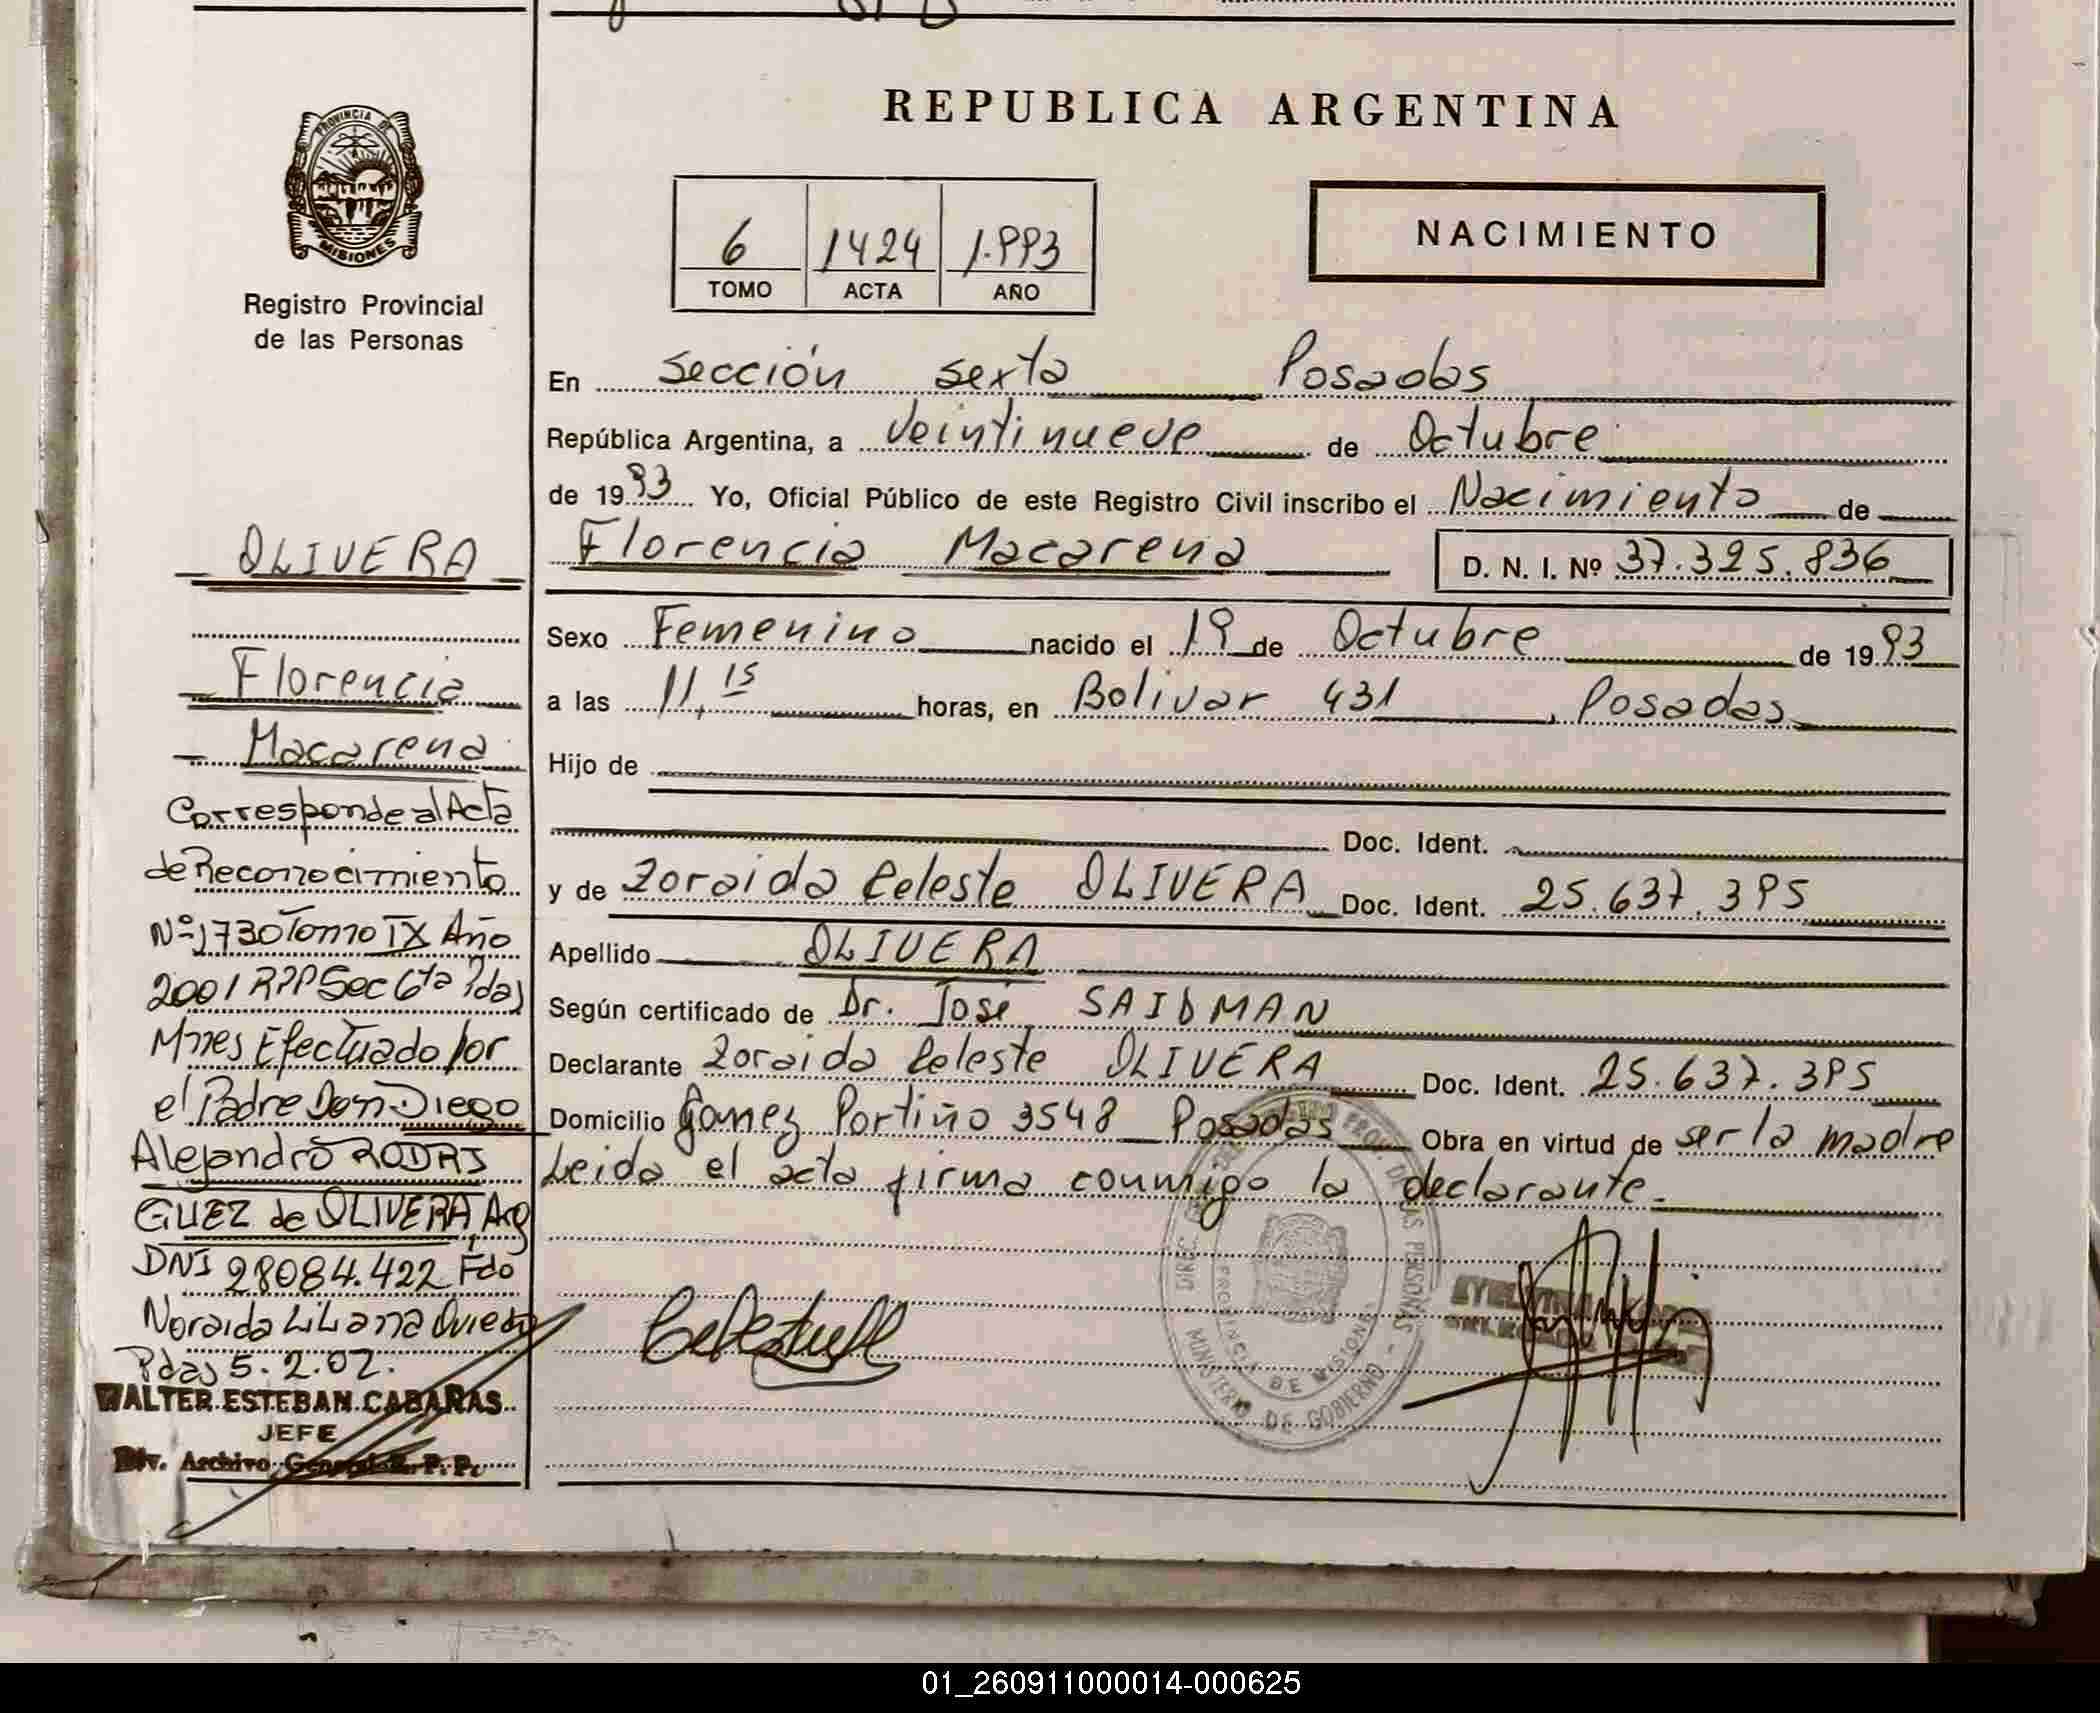 REPUBLICA ARGENTINA
PROVINCIA DE
MISIONES
Registro Provincial
de las Personas
6 1424 1.993
TOMO ACTA AÑO
NACIMIENTO
En Sección sexta Posadas
República Argentina, a Veintinueve de Octubre
de 1993 Yo, Oficial Público de este Registro Civil inscribo el Nacimiento de
Florencia Macarena D. N. I. Nº 37.395.836
Sexo Femenino nacido el 19 de Octubre de 1993
a las 11,15 horas, en Bolivar 431, Posadas
Hijo de
Doc. Ident.
y de Zoraida Celeste OLIVERA Doc. Ident. 25.637.395
Apellido OLIVERA
Según certificado de Dr. José SAIDMAN
Declarante Zoraida Celeste OLIVERA Doc. Ident. 25.637.395
Domicilio Gomez Portiño 3548 Posadas Obra en virtud de ser la madre
Leida el acta firma conmigo la declarante.
OLIVERA
Florencia
Macarena
Corresponde al Acta
de Reconocimiento
Nº 1730 Tomo IX Año
2001 RPP Sec 6ta Pdas
Mnes Efectuado por
el Padre Don Diego
Alejandro RODRI
GUEZ de OLIVERA, Arg
DNI 28084.422 Fdo
Noraida Liliana Oviedo
Pdas 5.2.02.
WALTER ESTEBAN CABAÑAS
JEFE
Div. Archivo General R. P. P.
DE LAS PERSONAS - MINISTERIO DE GOBIERNO
PROVINCIA DE MISIONES
01_260911000014-000625